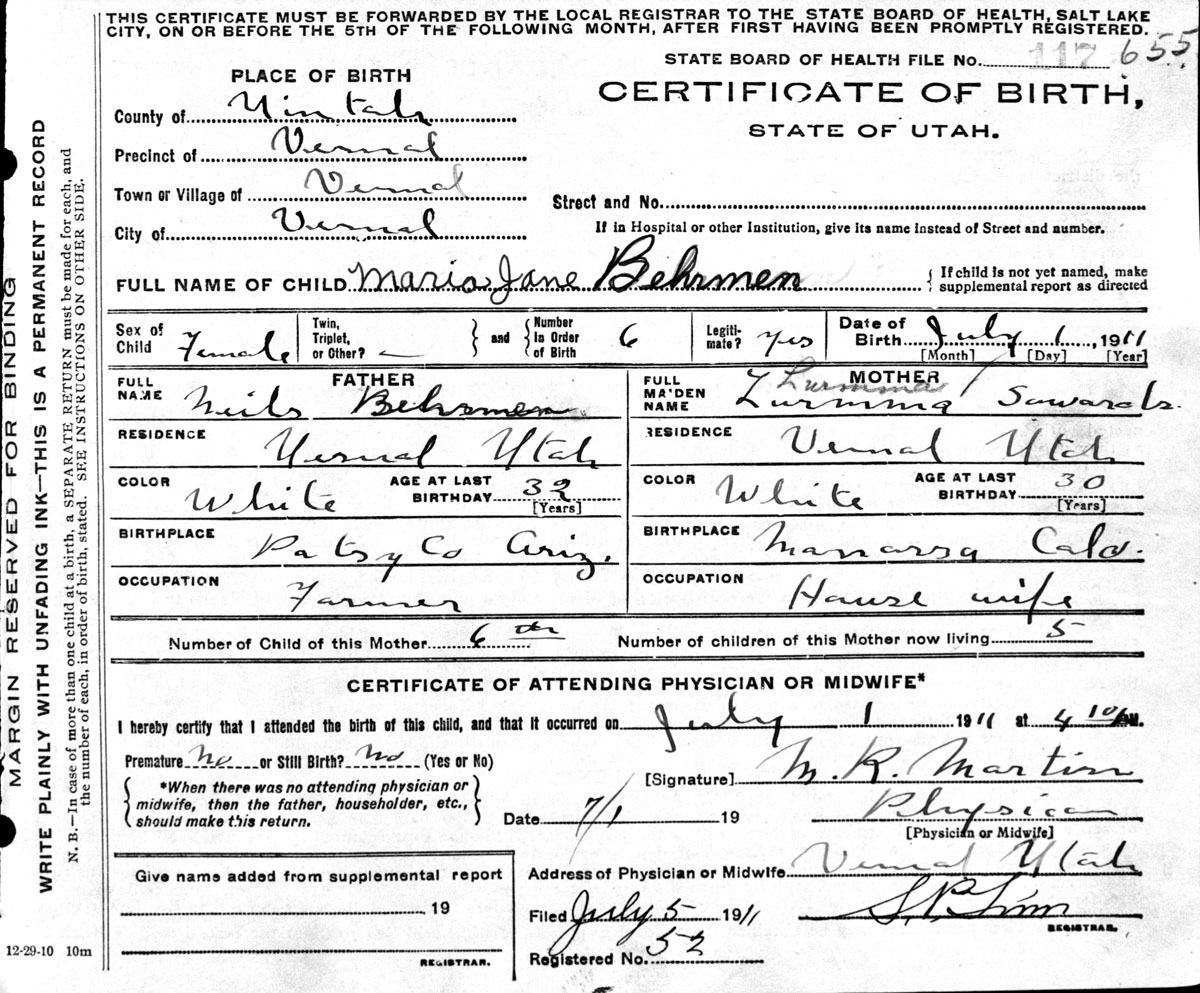 THIS CERTIFICATE MUST BE FORWARDED BY THE LOCAL REGISTRAR TO THE STATE BOARD OF HEALTH, SALT LAKE
CITY, ON OR BEFORE THE 5TH OF THE FOLLOWING MONTH, AFTER FIRST HAVING BEEN PROMPTLY REGISTERED.
STATE BOARD OF HEALTH FILE No. 117 655
PLACE OF BIRTH
CERTIFICATE OF BIRTH,
STATE OF UTAH.
County of Uintah
Precinct of Vernal
Town or Village of Vernal
Street and No.
City of Vernal
If in Hospital or other Institution, give its name instead of Street and number.
FULL NAME OF CHILD Maria Jane Behrmen
{ If child is not yet named, make
supplemental report as directed
Sex of Child Female
Twin, Triplet, or Other? —
and
Number in Order of Birth 6
Legitimate? Yes
Date of Birth July 1, 1911
[Month] [Day] [Year]
FATHER
FULL NAME Neils Behrmen
MOTHER
FULL MAIDEN NAME Lurmma
RESIDENCE Vernal Utah
RESIDENCE Vernal Utah
COLOR White
AGE AT LAST BIRTHDAY 32
[Years]
COLOR White
AGE AT LAST BIRTHDAY 30
[Years]
BIRTHPLACE Patsy Co Ariz.
BIRTHPLACE Manassa Colo.
OCCUPATION Farmer
OCCUPATION House wife
Number of Child of this Mother 6th
Number of children of this Mother now living 5
CERTIFICATE OF ATTENDING PHYSICIAN OR MIDWIFE*
I hereby certify that I attended the birth of this child, and that it occurred on July 1 1911 at 4 10 M.
Premature No or Still Birth? No (Yes or No)
[Signature] M. K. Martin
{ *When there was no attending physician or
midwife, then the father, householder, etc.,
should make this return. }
Date 7/1 19
Physican
[Physician or Midwife]
Address of Physician or Midwife Vernal Utah
Give name added from supplemental report
19
REGISTRAR.
Filed July 5 1911
REGISTRAR.
Registered No. 52
12-29-10 10m
MARGIN RESERVED FOR BINDING
WRITE PLAINLY WITH UNFADING INK—THIS IS A PERMANENT RECORD
N. B.—In case of more than one child at a birth, a SEPARATE RETURN must be made for each, and
the number of each, in order of birth, stated. SEE INSTRUCTIONS ON OTHER SIDE.